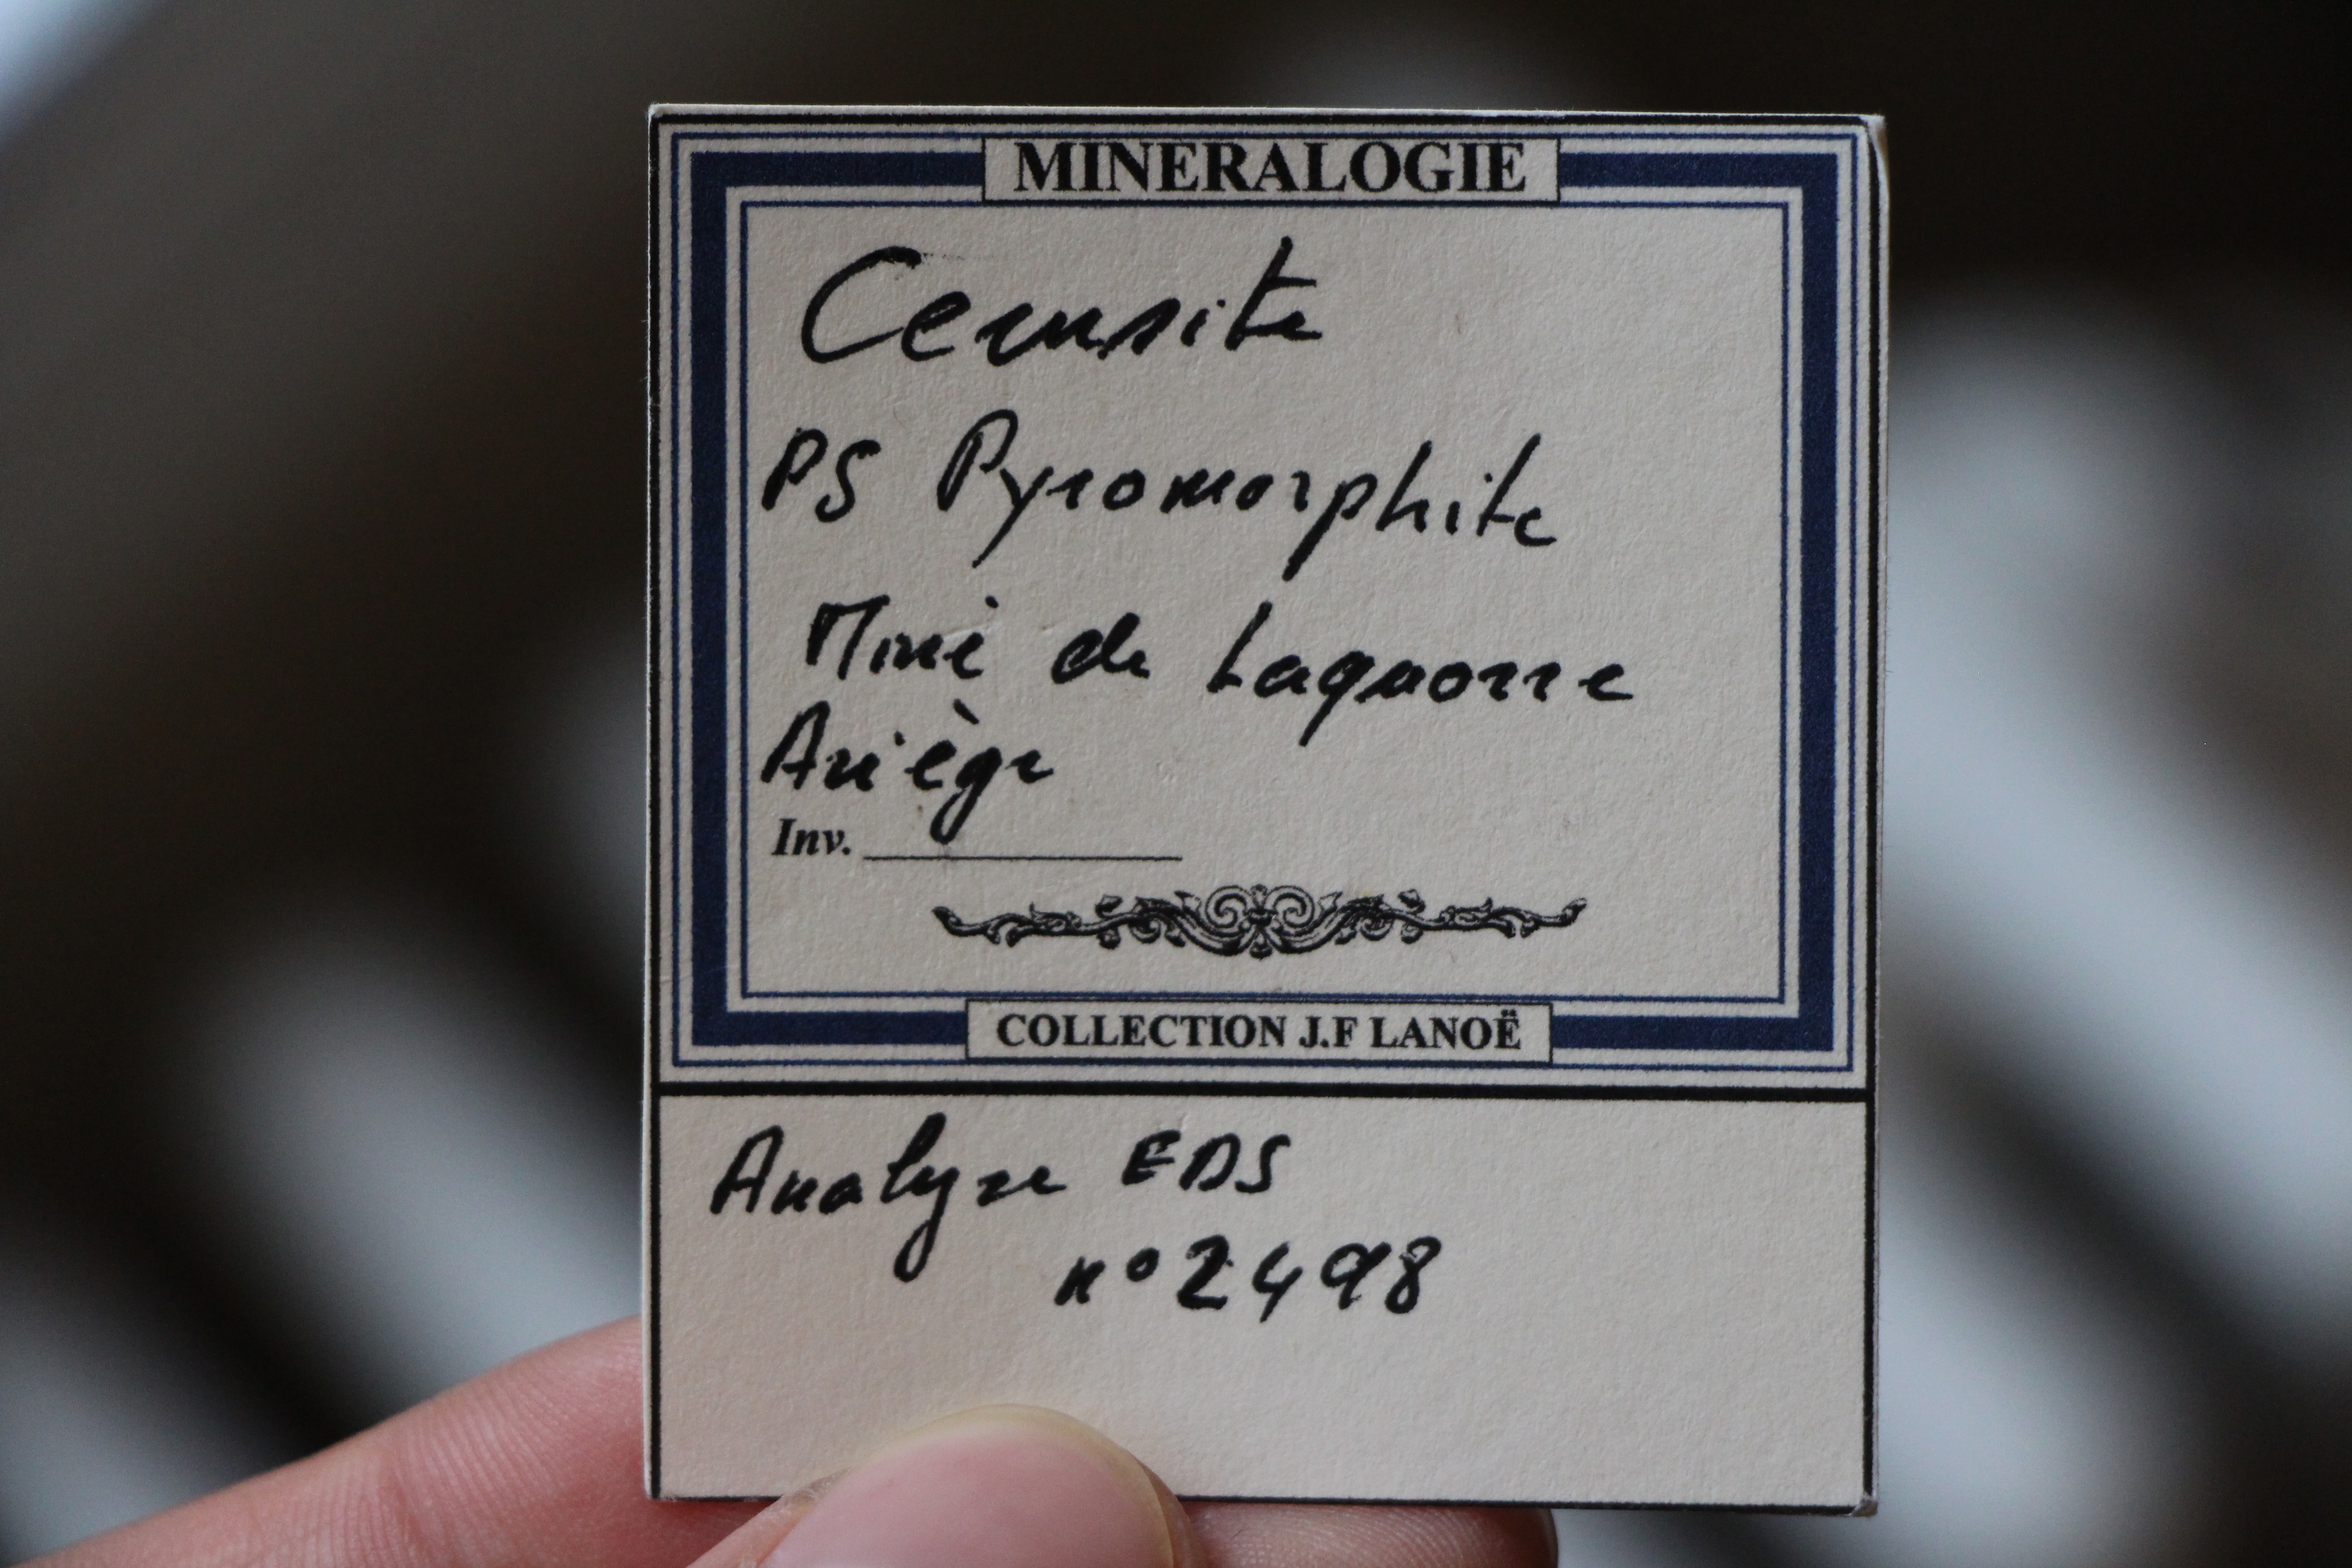 MINERALOGIE
Cerusite
PS Pyromorphite
Mine de Laquorre
Ariège
Inv.
COLLECTION J.F LANOË
Analyse EDS
n°2498